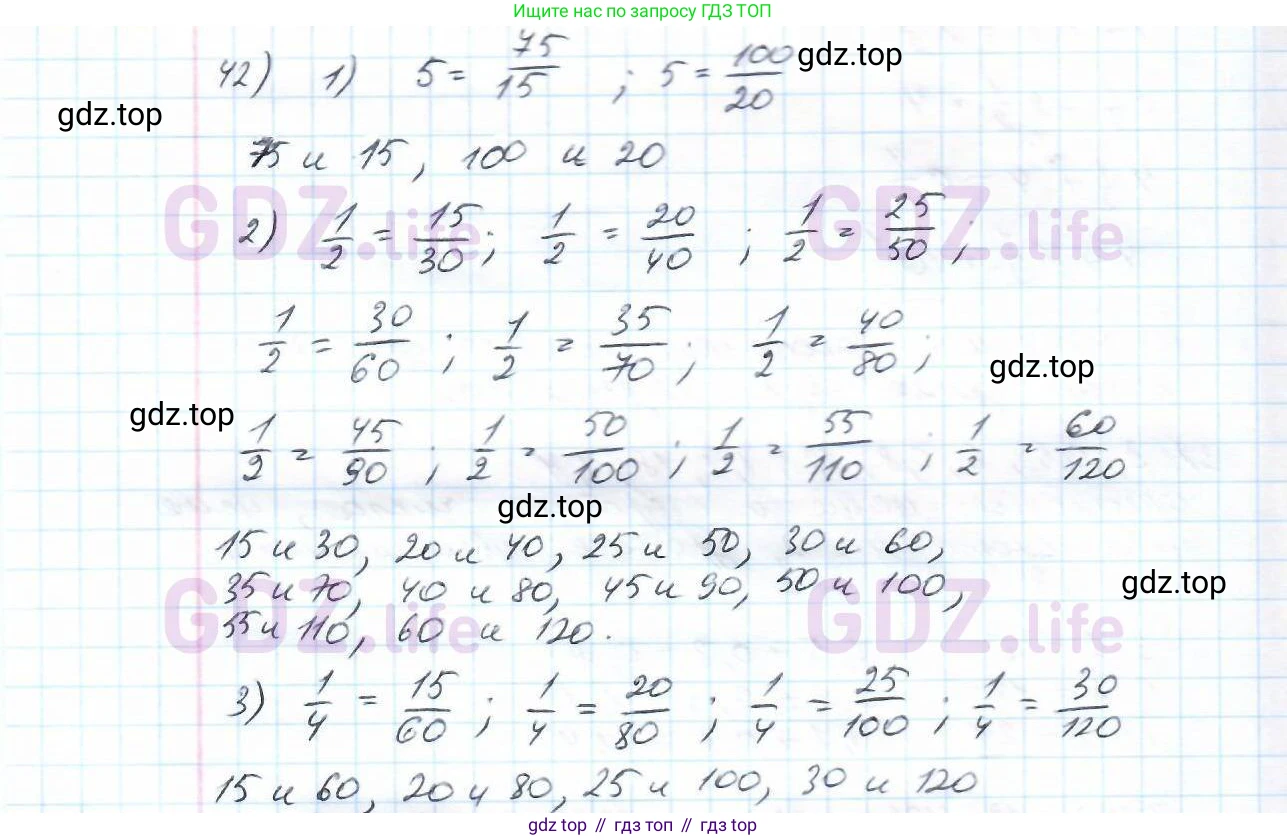 Ищите нас по запросу ГДЗ ТОП
42) 1) 5 = 75/15 ; 5 = 100/20
gdz.top
gdz.top
75 и 15, 100 и 20
GDZ.life GDZ.life
2) 1/2 = 15/30; 1/2 = 20/40 ; 1/2 = 25/50 ;
1/2 = 30/60 ; 1/2 = 35/70 ; 1/2 = 40/80 ;
gdz.top
gdz.top
1/2 = 45/90 ; 1/2 = 50/100 ; 1/2 = 55/110 ; 1/2 = 60/120
gdz.top
15 и 30, 20 и 40, 25 и 50, 30 и 60,
35 и 70, 40 и 80, 45 и 90, 50 и 100,
gdz.top
55 и 110, 60 и 120.
GDZ.life GDZ.life
3) 1/4 = 15/60 ; 1/4 = 20/80 ; 1/4 = 25/100 ; 1/4 = 30/120
15 и 60, 20 и 80, 25 и 100, 30 и 120
gdz top // гдз топ // gdz top